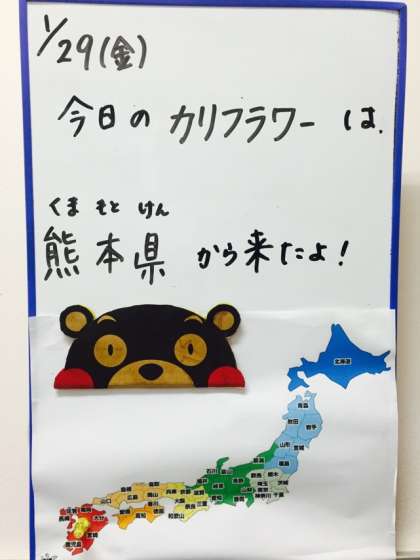 1/29(金)
今日の カリフラワー は、
くま もと けん
熊本県 から来たよ!
北海道
青森
秋田 岩手
山形
福島
新潟
石川 富山
福井 長野
岐阜
群馬 栃木
埼玉 茨城
山梨 東京
神奈川 千葉
静岡
愛知
鳥取
島根
岡山
広島
山口
兵庫 京都 滋賀
大阪
奈良 三重
和歌山
愛媛
香川
高知
徳島
福岡
佐賀
長崎
大分
宮崎
鹿児島